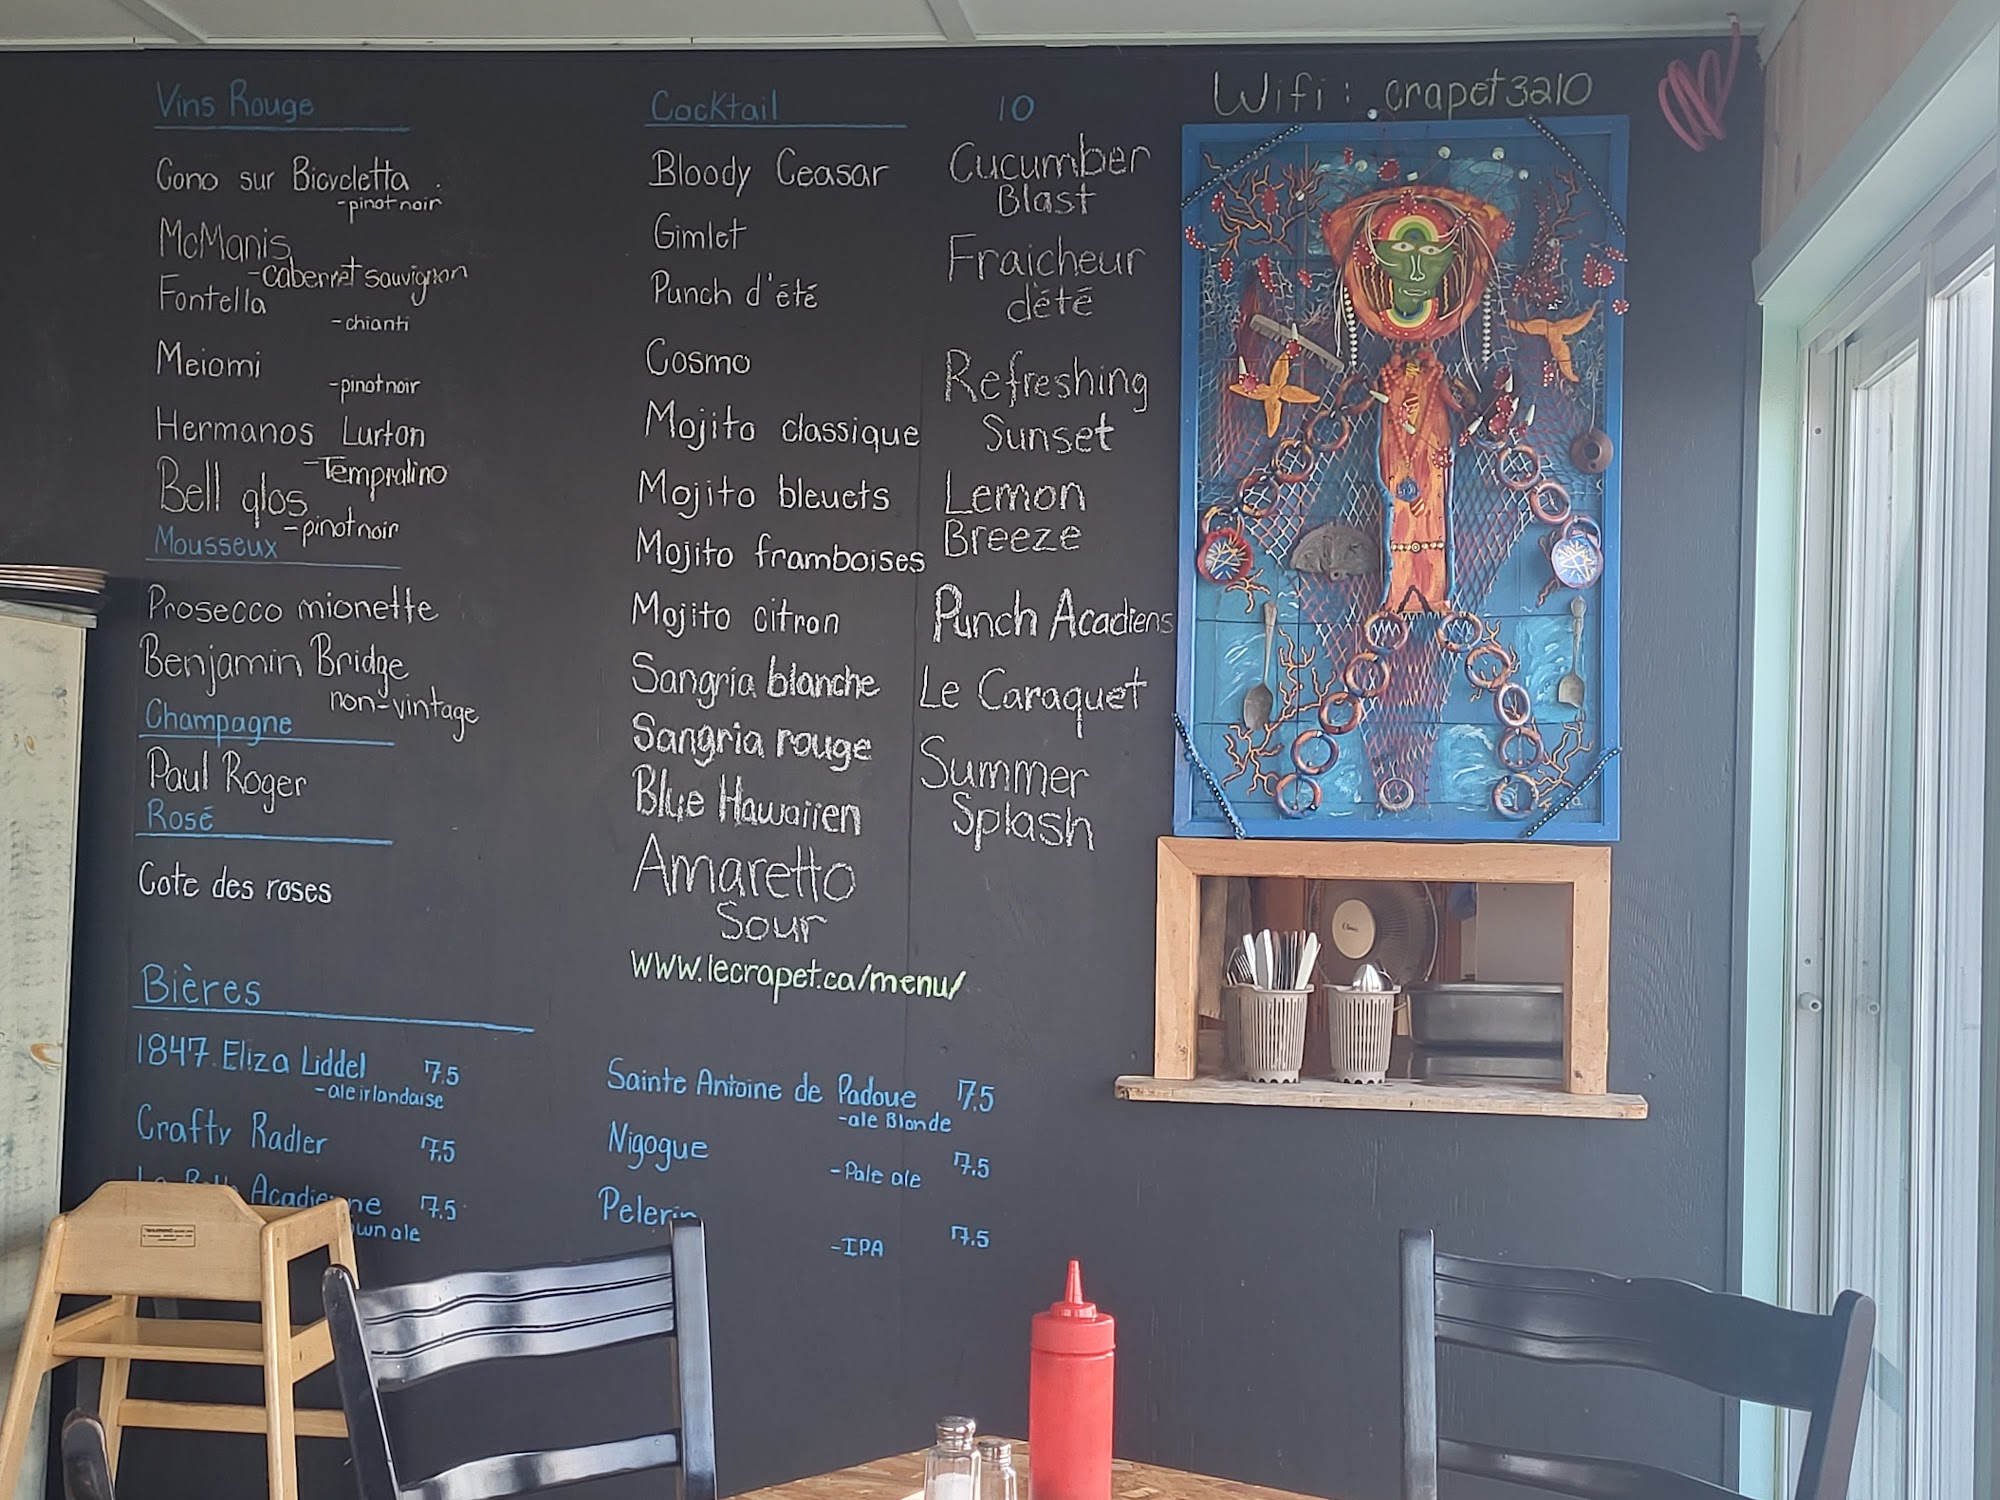 Vins Rouge
Cono sur Bicycletta
-pinot noir
McManis
-cabernet sauvignon
Fontella
-chianti
Meiomi
-pinot noir
Hermanos Lurton
-Tempralino
Bell glos
-pinot noir
Mousseux
Prosecco mionette
Benjamin Bridge
non-vintage
Champagne
Paul Roger
Rosé
Cote des roses
Cocktail 10
Bloody Ceasar
Gimlet
Punch d'été
Cosmo
Mojito classique
Mojito bleuets
Mojito framboises
Mojito citron
Sangria blanche
Sangria rouge
Blue Hawaiien
Amaretto
Sour
www.lecrapet.ca/menu/
Cucumber
Blast
Fraicheur
d'été
Refreshing
Sunset
Lemon
Breeze
Punch Acadiens
Le Caraquet
Summer
Splash
Wifi: crapet3210
Bières
1847. Eliza Liddel 7.5
-ale irlandaise
Crafty Radler 7.5
7.5
Sainte Antoine de Padoue 7.5
-ale Blonde
Nigogue 7.5
-Pale ale
7.5
-IPA